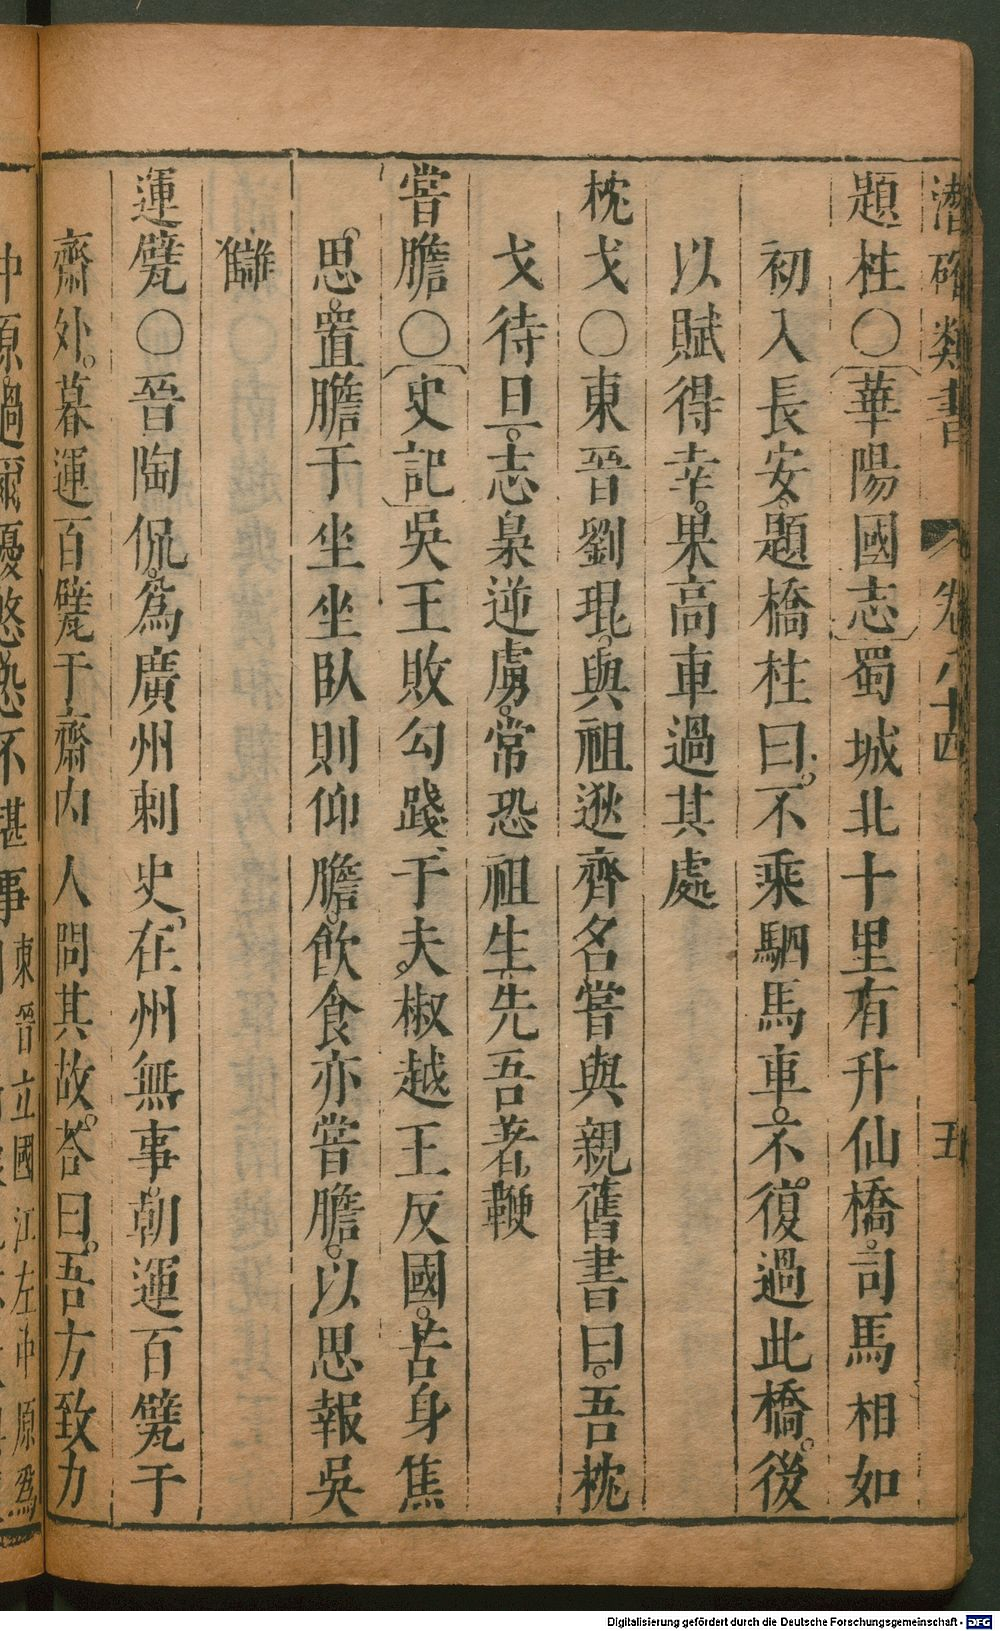 潛確類書 卷八十四 五
題柱○〔華陽國志〕蜀城北十里有升仙橋。司馬相如
初入長安。題橋柱曰。不乘駟馬車。不復過此橋。後
以賦得幸。果高車過其處
枕戈○東晉劉琨。與祖逖齊名嘗與親舊書曰。吾枕
戈待旦。志梟逆虜。常恐祖生先吾著鞭
嘗膽○〔史記〕吳王敗勾踐、于夫椒。越王反國。苦身焦
思。置膽于坐坐臥則仰膽。飲食亦嘗膽。以思報吳
讎
運甓○晉陶侃。爲廣州刺史。在州無事。朝運百甓于
齋外。暮運百甓于齋內人問其故。荅曰。吾方致力
中原。過爾優悠恐不堪事東晉立國江左中原爲
Digitalisierung gefördert durch die Deutsche Forschungsgemeinschaft - DFG